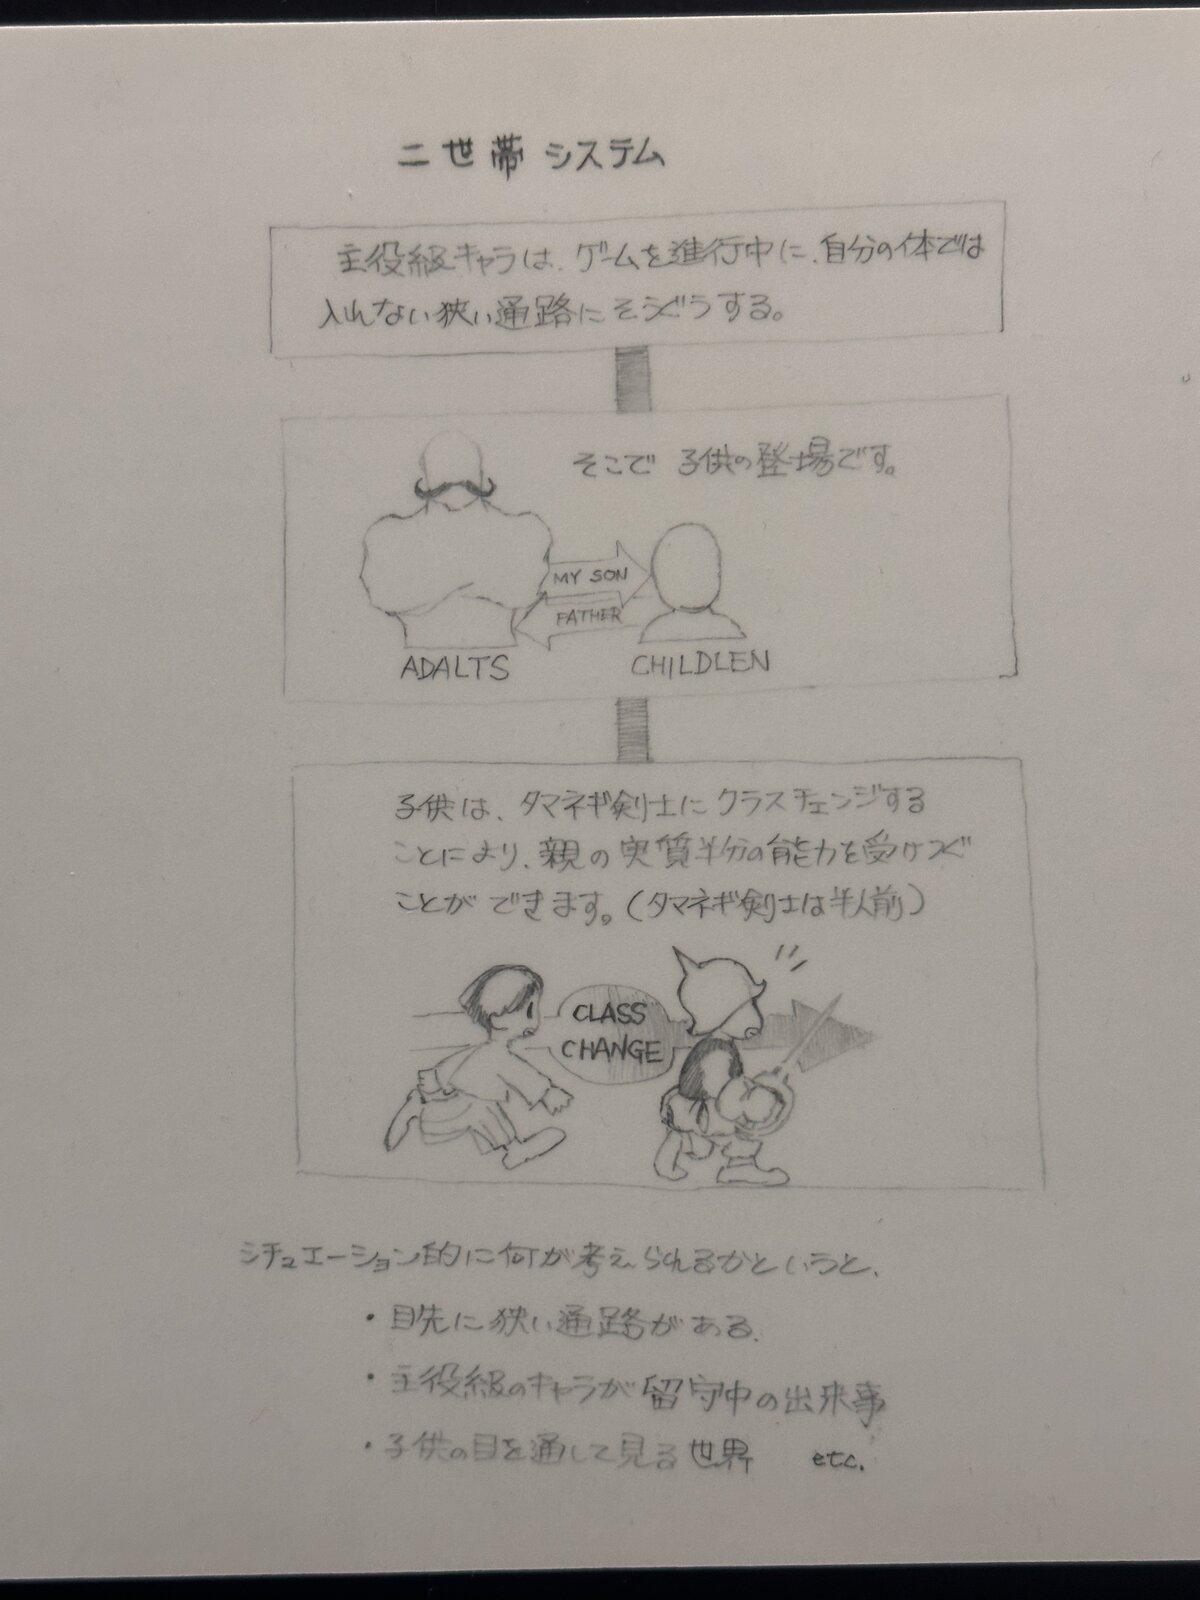 二世帯システム
主役級キャラは、ゲームを進行中に、自分の体では
入れない狭い通路にそうぐうする。
そこで 子供の登場です。
MY SON
FATHER
ADALTS
CHILDLEN
子供は、タマネギ剣士にクラスチェンジする
ことにより、親の実質半分の能力を受けつぐ
ことができます。(タマネギ剣士は半人前)
CLASS
CHANGE
シチュエーション的に何が考えられるかというと、
・目先に狭い通路がある。
・主役級のキャラが留守中の出来事
・子供の目を通して見る世界 etc.